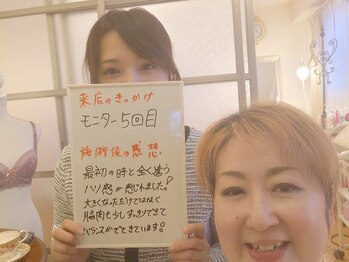 来店のきっかけ
モニター5回目
施術後の感想
最初の時と全く違う
ハリ感が感じれました!
大きくなっただけではなく
脇肉も少しすっきりできて
バランスがでてきています!